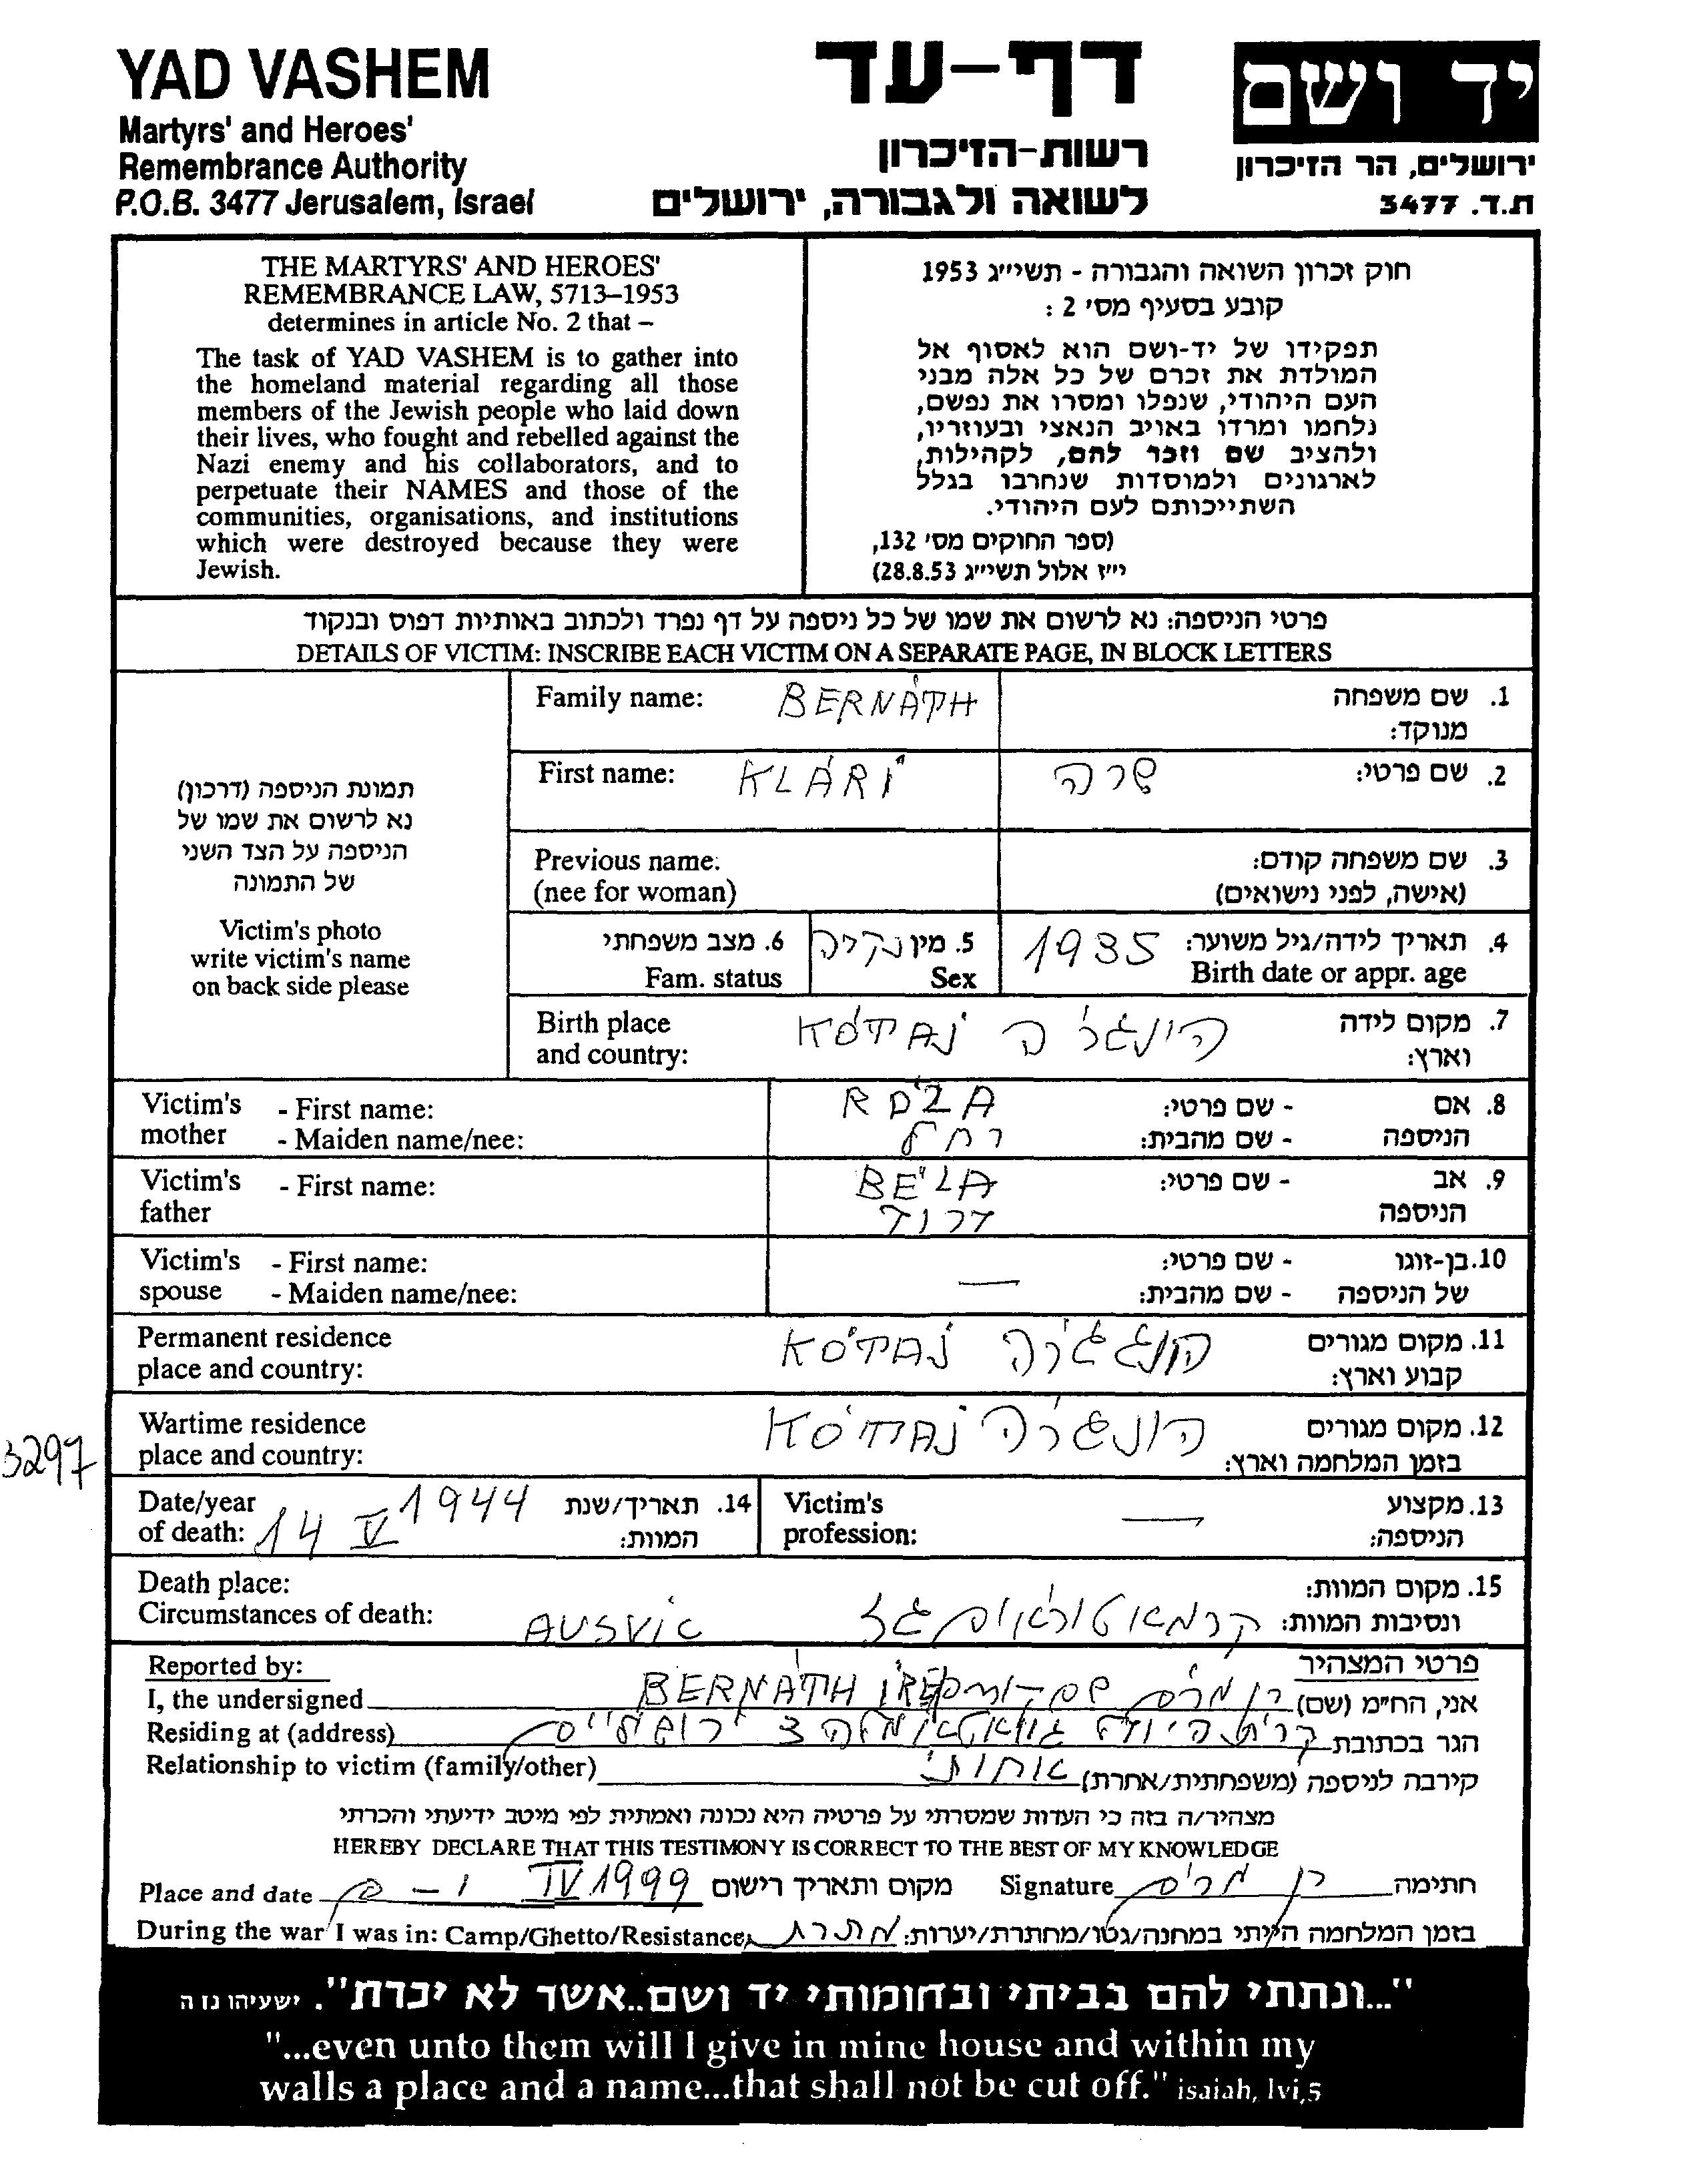 YAD VASHEM
Martyrs' and Heroes'
Remembrance Authority
P.O.B. 3477 Jerusalem, Israel
דף-עד
רשות-הזיכרון
לשואה ולגבורה, ירושלים
יד ושם
ירושלים, הר הזיכרון
ת.ד. 3477
THE MARTYRS' AND HEROES'
REMEMBRANCE LAW, 5713–1953
determines in article No. 2 that –
The task of YAD VASHEM is to gather into
the homeland material regarding all those
members of the Jewish people who laid down
their lives, who fought and rebelled against the
Nazi enemy and his collaborators, and to
perpetuate their NAMES and those of the
communities, organisations, and institutions
which were destroyed because they were
Jewish.
חוק זכרון השואה והגבורה - תשי״ג 1953
קובע בסעיף מס' 2 :
תפקידו של יד-ושם הוא לאסוף אל
המולדת את זכרם של כל אלה מבני
העם היהודי, שנפלו ומסרו את נפשם,
נלחמו ומרדו באויב הנאצי ובעוזריו,
ולהציב שם וזכר להם, לקהילות,
לארגונים ולמוסדות שנחרבו בגלל
השתייכותם לעם היהודי.
(ספר החוקים מס' 132,
י״ז אלול תשי״ג 28.8.53)
פרטי הניספה: נא לרשום את שמו של כל ניספה על דף נפרד ולכתוב באותיות דפוס ובנקוד
DETAILS OF VICTIM: INSCRIBE EACH VICTIM ON A SEPARATE PAGE, IN BLOCK LETTERS
תמונת הניספה (דרכון)
נא לרשום את שמו של
הניספה על הצד השני
של התמונה
Victim's photo
write victim's name
on back side please
Family name: BERNÁTH 1. שם משפחה
מנוקד:
First name: KLÁRI שרה 2. שם פרטי:
Previous name: 3. שם משפחה קודם:
(nee for woman) (אישה, לפני נישואים)
6. מצב משפחתי 5. מין נקיבה 1935 4. תאריך לידה/גיל משוער:
Fam. status Sex Birth date or appr. age
Birth place KÓTAJ הונגריה 7. מקום לידה
and country: וארץ:
Victim's - First name: RÓZA - שם פרטי: 8. אם
mother - Maiden name/nee: רחל - שם מהבית: הניספה
Victim's - First name: BÉLA - שם פרטי: 9. אב
father דוד הניספה
Victim's - First name: — - שם פרטי: 10. בן-זוגו
spouse - Maiden name/nee: - שם מהבית: של הניספה
Permanent residence KÓTAJ 11. מקום מגורים
place and country: קבוע וארץ:
Wartime residence KÓTAJ הונגריה 12. מקום מגורים
place and country: בזמן המלחמה וארץ:
3297
Date/year 14 V 1944 14. תאריך/שנת
of death: המוות:
Victim's — 13. מקצוע
profession: הניספה:
Death place: 15. מקום המוות:
Circumstances of death: AUSVIC גז ונסיבות המוות:
Reported by: פרטי המצהיר
I, the undersigned BERNÁTH אני, הח״מ (שם)
Residing at (address) ירושלים הגר בכתובת
Relationship to victim (family/other) אחות קירבה לניספה (משפחתית/אחרת)
מצהיר/ה בזה כי העדות שמסרתי על פרטיה היא נכונה ואמתית לפי מיטב ידיעתי והכרתי
HEREBY DECLARE THAT THIS TESTIMONY IS CORRECT TO THE BEST OF MY KNOWLEDGE
Place and date IV 1999 מקום ותאריך רישום Signature חתימה
During the war I was in: Camp/Ghetto/Resistance בזמן המלחמה הייתי במחנה/גטו/מחתרת/יערות:
"...ונתתי להם בביתי ובחומותי יד ושם..אשר לא יכרת". ישעיהו נו ה
"...even unto them will I give in mine house and within my
walls a place and a name...that shall not be cut off." isaiah, lvi,5